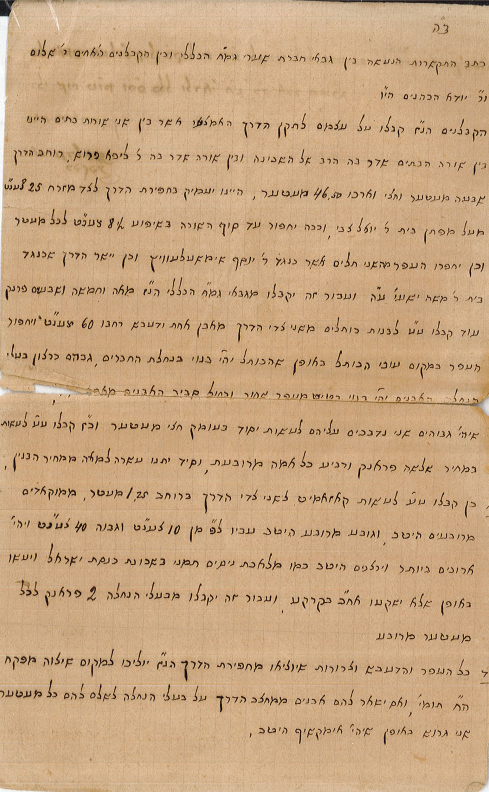 ב"ה
כתב התקשרות הנעשה בין גבאי חברת שערי גמ"ח הכללי ובין הקבלנים האחים ר' שלום
ור' יודא הכהנים הי"ו
הקבלנים הנ"ל קבלו על עצמם לתקן הדרך האמצעי אשר בין שני שורות בתים היינו
בין שורה הבתים אשר בה הרב אל השכונה ובין שורה אשר בה ר' ליפא פרוש, רוחב הדרך
שבעה מעטער וחצי וארכו 46.50 מעטער, היינו יעמיק בחפירת הדרך לצד מזרח 25 צענט'
מעל מפתן בית ר' יואל צבי, וככה יחפור עד סוף השורה בשיפוע 4½ צענט' לכל מעטר
וכן יחפרו העפר מהשני תלים אשר כנגד ר' יוסף וכן יישר הדרך שכנגד
בית ר' משה ישעי' ע"ה ועבור זה יקבלו מגבאי גמ"ח הכללי הנ"ל מאה וחמשה ושבעים פרנק
עוד קבלו ע"ע לבנות כותלים משני צדי הדרך מאבן אחת ודבש רחבו 60 צענט' ויחפור
העפר במקום עובי הכותל באופן שהכותל יהי' בנוי בנחלת החברים, גבהם כרצון בעלי
הנחלה, האבנים יהי' בנוי בטיט מעפר שחור וכחול סביב האבנים
שיהי' גבוהים אזי נדבכים עליהם לעשות יסוד בעומק חצי מעטער וכ"ז קבלו ע"ע לעשות
במחיר שלשה פראנק ורביע כל אמה מרובעת, וסיד יתנו עשרה למאה ממחיר הבנין,
כן קבלו ע"ע לעשות קאזאמיט לשני צדי הדרך ברוחב 1.25 מעטר, ממוקאדים
מרובעים היטב, וגובע מרובע היטב עביו לפ' מן 10 צענט' וגבוה 40 צענט' ויהי'
ארוכים ביותר וירצפם היטב כמו מלאכת ניסים תמני בשכונת כנסת ישראל ויעשו
באופן שלא ישקעו אח"כ בקרקע, ועבור זה יקבלו מבעלי הנחלה 2 פראנק לכל
מעטער מרובע
ד כל העפר והדעבש וצרורות שיוציאו מחפירת הדרך הנ"ל יוליכו למקום שיצוה מפקח
הח' תומי', ואם ישאר להם אבנים ממחצב הדרך על בעלי הנחלה לשלם להם כל מעטער
שני גרוש באופן שיהי' אימקשיף היטב.